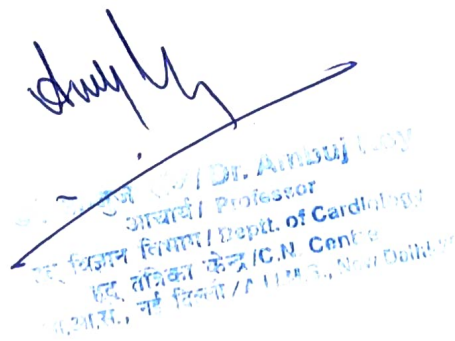 / Dr. Ambuj Roy
आचार्य / Professor
हृद् विज्ञान विभाग / Deptt. of Cardiology
हृद् तंत्रिका केन्द्र / C.N. Centre
अ.भा.आ.सं., नई दिल्ली / A.I.I.M.S., New Delhi